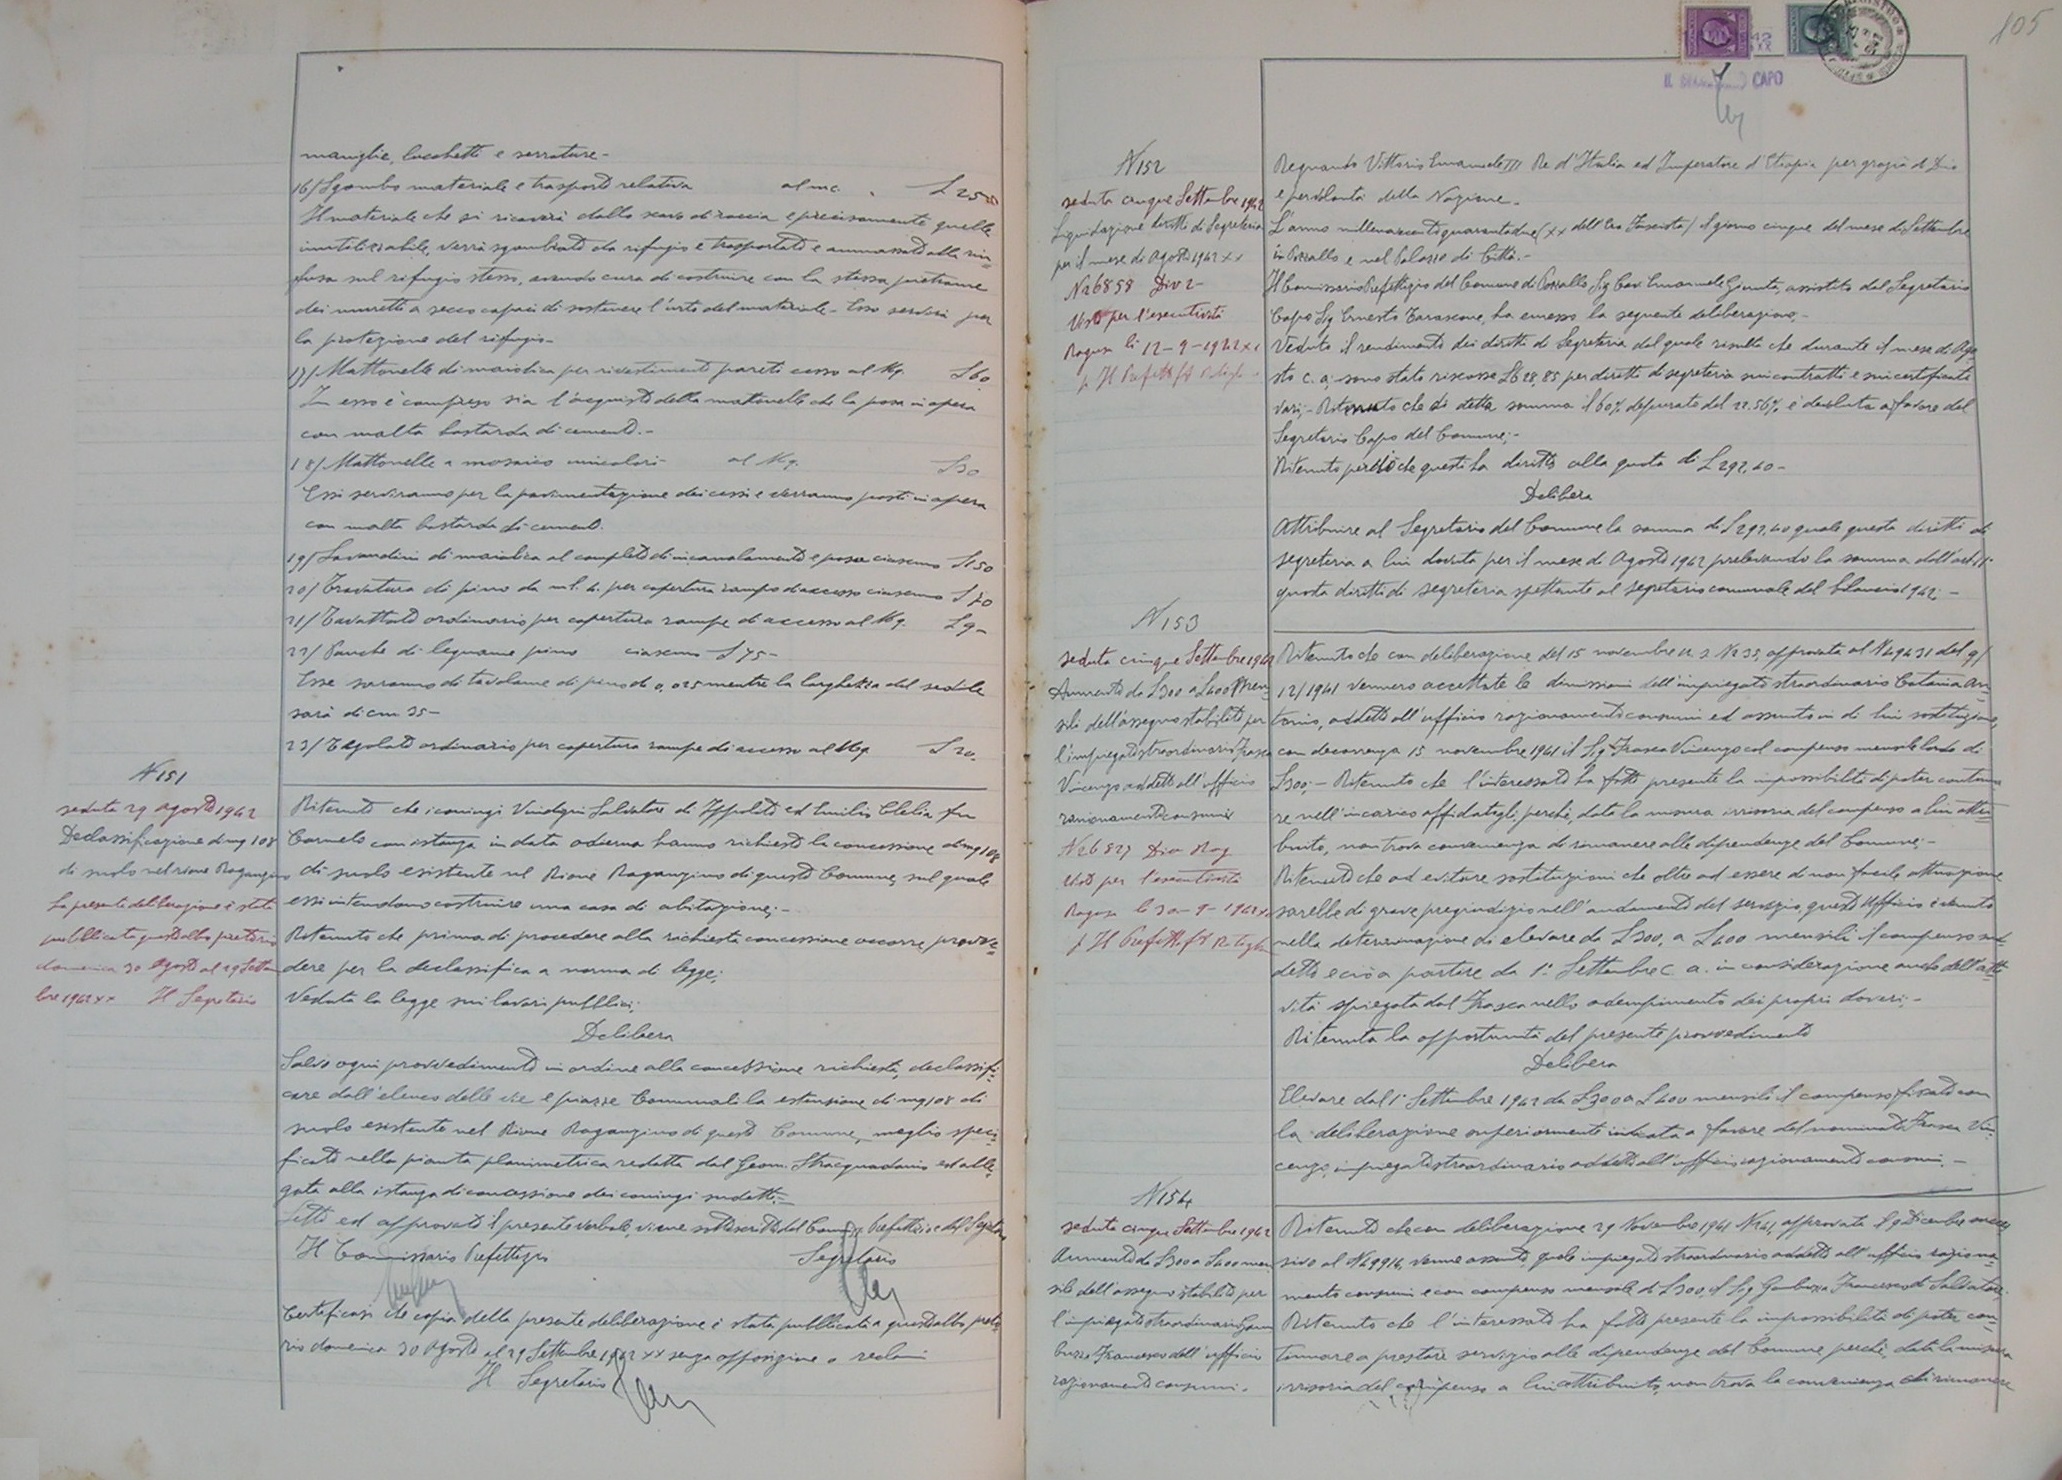 maniglie, lucchetti e serrature-
16/ Sgombro materiale e trasporto relativo al mc. L 25
Il materiale che si ricaverà dallo scavo di roccia e precisamente quello
inutilizzabile, verrà sgombrato da rifugio e trasportato e ammassato alla rin-
fusa sul rifugio stesso, avendo cura di costruire con la stessa pietrame
dei muretti a secco capaci di sostenere l'urto del materiale- Esso servirà per
la protezione del rifugio-
17/ Mattonelle di maiolica per rivestimento pareti cesso al Mq. L 60
In esso è compreso sia l'acquisto della mattonelle che la posa in opera
con malta bastarda di cemento.-
18/ Mattonelle a mosaico unicolori al Mq. L 30
Essi serviranno per la pavimentazione dei cessi e verranno posti in opera
con malta bastarda di cemento.
19/ Lavandini di maiolica al completo di incanalamento e posa ciascuno L 150
20/ Travatura di pino da ml. 4. per copertura rampe di accesso ciascuno L 70
21/ Tavattato ordinario per copertura rampe di accesso al Mq. L 9-
22/ Panche di legname pino ciascuno L 75-
Esse saranno di tavolame di pino di 0,025 mentre la larghezza del sedile
sarà di cm 35-
23/ Tegolato ordinario per copertura rampe di accesso al Mq L 20.
N 151
seduta 29 agosto 1942
Declassificazione di mq 108
di suolo nel rione Raganzino
La presente deliberazione è stata
pubblicata quest'albo pretorio
domenica 30 agosto al 29 Settem
bre 1942 XX Il Segretario
Ritenuto che i coniugi Vindigni Salvatore di Ippolito ed Emilio Clelia fu
Carmelo con istanza in data odierna hanno richiesto la concessione di mq 108
di suolo esistente nel Rione Raganzino di questo Comune, sul quale
essi intendono costruire una casa di abitazione;-
Ritenuto che prima di procedere alla richiesta concessione occorre provve-
dere per la declassifica a norma di legge;
Veduta la legge sui lavori pubblici;
Delibera
Salvo ogni provvedimento in ordine alla concessione richiesta, declassifi-
care dall'elenco delle vie e piazze Comunali la estensione di mq 108 di
suolo esistente nel Rione Raganzino di questo Comune, meglio speci-
ficato nella pianta planimetrica redatta dal Geom. Stracquadanio ed alle-
gata alla istanza di concessione dei coniugi sudetti.-
Letto ed approvato il presente verbale, viene sottoscritto dal Comm. Prefettizio e dal Segretario
Il Commissario Prefettizio Segretario
Certificasi che copia della presente deliberazione è stata pubblicata a quest'albo preto-
rio domenica 30 Agosto al 29 Settembre 1942 XX senza opposizione o reclami
Il Segretario
105
IL CAPO
N 152
seduta cinque Settembre 1942
Liquidazione diritti di Segreteria
per il mese di agosto 1942 XX
N 26858 Div 2-
Visto per l'esecutività
Ragusa li 12-9-1942 XX
p. Il Prefetto
Regnando Vittorio Emanuele III Re d'Italia ed Imperatore d'Etiopia per grazia di Dio
e per volontà della Nazione.-
L'anno millenovecentoquarantadue (XX dell'Era Fascista) il giorno cinque del mese di Settembre
in Pozzallo e nel Palazzo di Città.-
Il Commissario Prefettizio del Comune di Pozzallo Sig. Cav. Emanuele Giunta, assistito dal Segretario
Capo Sig. Ernesto Tarascone, ha emesso la seguente deliberazione.-
Veduto il rendimento dei diritti di Segreteria dal quale risulta che durante il mese di Ago-
sto c. a; sono state riscosse L 628,85 per diritti di segreteria sui contratti e sui certificati
vari;- Ritenuto che di detta somma il 60% depurato del 22.56% è devoluta a favore del
Segretario Capo del Comune;-
Ritenuto perciò che questi ha diritto alla quota di L 292,40-
Delibera
Attribuire al Segretario del Comune la somma di L 292,40 quale questa diritti di
segreteria a lui dovuta per il mese di Agosto 1942 prelevando la somma dall'art.
quota diritti di segreteria spettante al segretario comunale del bilancio 1942.-
N 153
seduta cinque Settembre 1942
Aumento da L300 a L400 Men
sili dell'assegno stabilito per
l'impiegato straordinario Frasca
Vincenzo addetto all'ufficio
razionamento consumi
N 26827 Div Rag
Visto per l'esecutività
Ragusa li 30-9-1942 XX
p Il Prefetto
Ritenuto che con deliberazione del 15 novembre u. s. N 235, approvata al N 49431 del 9/
12/1941 vennero accettate le dimissioni dell'impiegato straordinario Catania An-
tonio, addetto all'ufficio razionamento consumi ed assunto in di lui sostituzione,
con decorrenza 15 novembre 1941 il Sig Frasca Vincenzo col compenso mensile lordo di
L300;- Ritenuto che l'interessato ha fatto presente la impossibilità di poter continua
re nell'incarico affidatogli perchè, data la misura irrisoria del compenso a lui attri-
buito, non trova convenienza di rimanere alle dipendenze del Comune;-
Ritenuto che ad evitare sostituzioni che oltre ad essere di non facile attuazione
sarebbe di grave pregiudizio nell'andamento del servizio, questo Ufficio è venuto
nella determinazione di elevare da L300, a L400 mensili il compenso sud-
detto e ciò a partire da 1° Settembre c. a. in considerazione anche dell'atti-
vità spiegata dal Frasca nello adempimento dei propri doveri;-
Ritenuta la opportunità del presente provvedimento
Delibera
Elevare dal 1° Settembre 1942 da L300 a L400 mensili il compenso fissato con
la deliberazione superiormente indicata a favore del nominato Frasca Vin-
cenzo, impiegato straordinario addetto all'ufficio razionamento consumi.-
N 154
seduta cinque Settembre 1942
Aumento da L300 a L400 men
sili dell'assegno stabilito per
l'impiegato straordinario Gam
buzza Francesco dell'ufficio
razionamento consumi.
Ritenuto che con deliberazione 29 Novembre 1941 N 241, approvata il 9 Dicembre succes
sivo al N 49916, venne assunto quale impiegato straordinario addetto all'ufficio raziona-
mento consumi e con compenso mensile di L300, il Sig Gambuzza Francesco di Salvatore,
Ritenuto che l'interessato ha fatto presente la impossibilità di poter con-
tinuare a prestare servizio alle dipendenze del Comune perchè, data la misura
irrisoria del compenso a lui attribuito, non trova la convenienza di rimanere